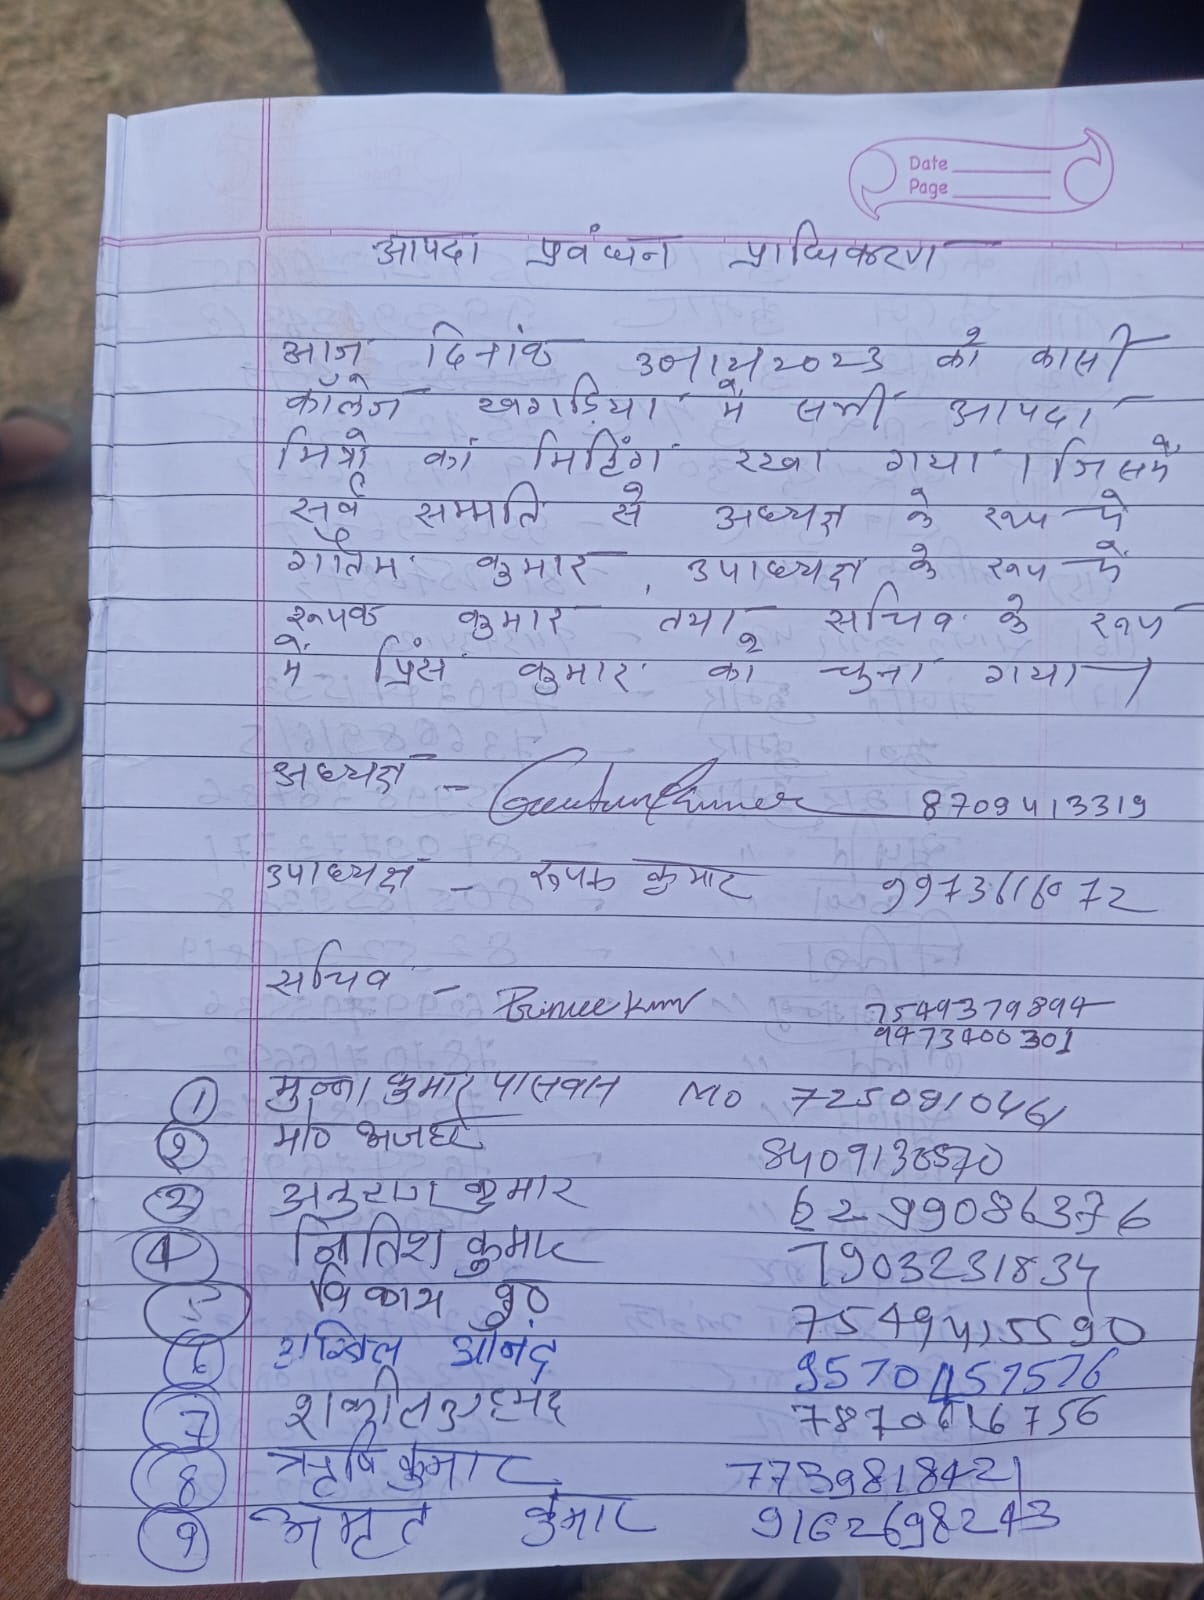 Date
Page
आपदा प्रबंधन प्राधिकरण
आज दिनांक 2023 को कोसी
कॉलेज खगड़िया में सभी आपदा
मित्रो का मिटिंग रखा गया । जिसमें
सर्व सम्मति से अध्यक्ष के रूप मे
गौतम कुमार, उपाध्यक्ष के रूप में
रूपक कुमार तथा सचिव के रूप
में प्रिंस कुमार को चुना गया ।
अध्यक्ष - Gautam Kumar 8709413319
उपाध्यक्ष - रूपक कुमार 9973616072
सचिव - Prince Kum 7549379894
9473400301
1 मुन्ना कुमार पासवान MO 7250810461
2 मो० 8409130570
3 अनुराग कुमार 6299086376
4 नितिश कुमार 7903231834
5 विकाश कु० 7549415590
6 आनंद 9570457576
7 शकील अहमद 7870616756
8 ऋषि कुमार 7739818421
9 अमृत कुमार 9162698243